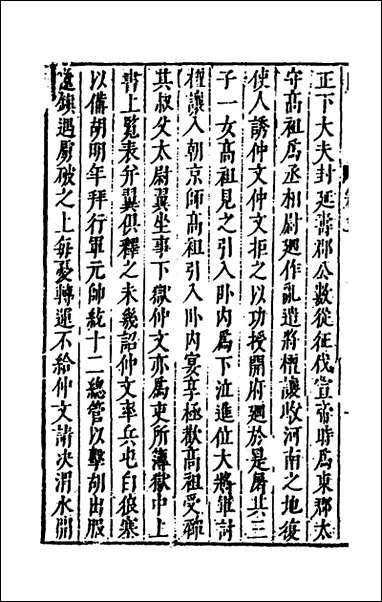 正下大夫封延壽郡公數從征伐宣帝時爲東郡太
守高祖爲丞相尉迥作亂遣將檀讓收河南之地復
使人誘仲文仲文拒之以功授開府迥於是屠其三
子一女高祖見之引入卧内爲下泣進位大將軍討
檀讓入朝京師高祖引入卧内宴享極歡高祖受禪
其叔父太尉翼坐事下獄仲文亦爲吏所簿獄中上
書上覧表并翼俱釋之未幾詔仲文率兵屯白狼塞
以備胡明年拜行軍元帥統十二總管以擊胡出服
遠鎮遇虜破之上每憂轉運不給仲文請决渭水開